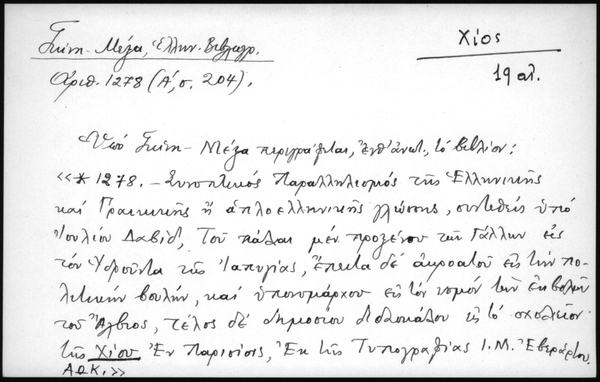 Γκίνη - Μέξα, Ἑλλην. Βιβλιογρ.
Χίος
Ἀριθ. 1278 (Α΄, σ. 204).
19 αἰ.
Ὑπό Γκίνη - Μέξα περιγράφεται, ἔνθ' ἀνωτ., τό βιβλίον:
«* 1278. - Συνοπτικός Παραλληλισμός τῆς Ἑλληνικῆς
καί Γραικικῆς ἤ ἁπλοελληνικῆς γλώσσης, συντεθείς ὑπό
Ἰουλίου Δαβίδ, Τοῦ πάλαι μέν προξένου τῶν Γάλλων εἰς
τόν Ὑδροῦντα τῆς Ἰαπυγίας, ἔπειτα δέ ἀκροατοῦ εἰς τήν πο-
λιτικήν βουλήν, καί ὑπονομάρχου εἰς τόν νομόν τῶν ἐκβολῶν
τοῦ Ἄλβιος, τέλος δέ δημοσίου διδασκάλου εἰς τό σχολεῖον
τῆς Χίου. Ἐν Παρισίοις, Ἐκ τῆς Τυπογραφίας Ι. Μ. Ἐβεράρτου.
ΑΩΚ.»